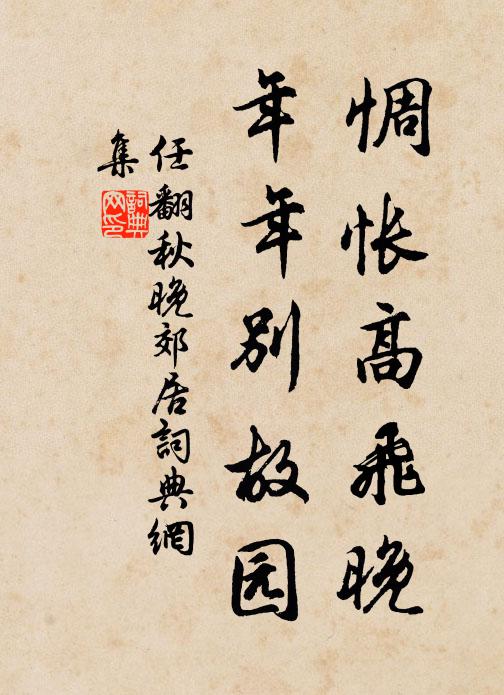 惆怅高飞晚
年年别故园
任翻秋晚郊居詞典網
集
詞典
网印